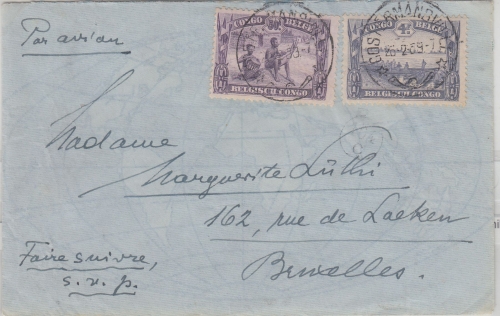 Par avion
CONGO BELGE
BELGISCH CONGO
CONGO BELGE
BELGISCH CONGO
COSTERMANSVILLE
Madame
Marguerite Lüthi
162, rue de Laeken
Bruxelles.
Faire suivre,
s. v. p.